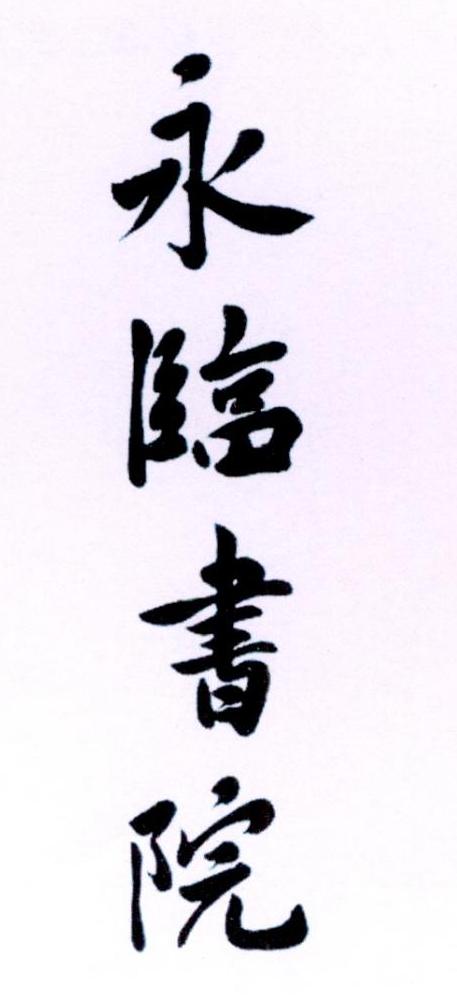 永臨書院